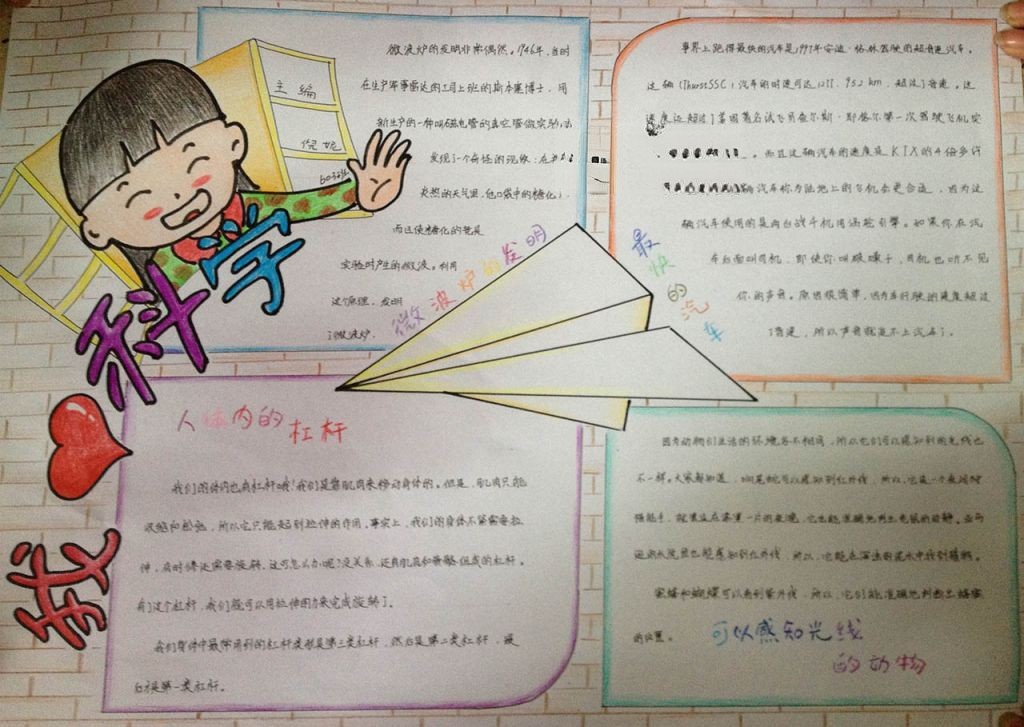 我 科学
主编
倪妮
603班
微波炉的发明
微波炉的发明非常偶然。1946年,当时
在生产军事雷达的工司上班的斯本塞博士,用
新生产的一种叫磁电管的真空管做实验,
发现了一个奇怪的现象:在
炎热的天气里,他口袋中的糖化了,
而且使糖化的竟是
实验时产生的微波。利用
这个原理,发明
了微波炉。
最快的汽车
事界上跑得最快的汽车是1997年安迪·格林驾驶的超音速汽车。
这辆(ThurstSSC)汽车的时速可达1277.952km,超过了音速。这
速度还超过了美国著名试飞员查尔斯·耶格尔第一次驾驶飞机实
。而且这辆汽车的速度是KTX的4倍多许
汽车称为陆地上的飞机会更合适,因为这
辆汽车使用的是两台战斗机用涡轮引擎。如果你在汽
车后面叫司机,即使你叫破嗓子,司机也听不见
你的声音。原因很简单,因为车行驶的速度超过
了音速,所以声音就追不上汽车了。
人体内的杠杆
我们的体内也有杠杆哦!我们是靠肌肉来移动身体的。但是,肌肉只能
收缩和松弛,所以它只能起到拉伸的作用。事实上,我们的身体不紧需要拉
伸,有时候还需要旋转。这可怎么办呢?没关系,还有肌肉和骨骼组成的杠杆。
有了这个杠杆,我们就可以用拉伸的力来完成旋转了。
我们身体中最常用到的杠杆类形是第三类杠杆,然后是第二类杠杆,最
后才是第一类杠杆。
因为动物们生活的环境各不相同,所以它们可以感知到的光线也
不一样。大家都知道,响尾蛇可以感知到红外线,所以,它是一个夜间狩
猎能手,就算是在漆黑一片的夜晚,它也能准确地判出老鼠的动静。亚马
逊淡水龙鱼也能感知到红外线,所以,它能在浑浊的泥水中找到猎物。
蜜蜂和蝴蝶可以看到紫外线,所以,它们能准确地判断出蜂蜜
的位置。
可以感知光线
的动物